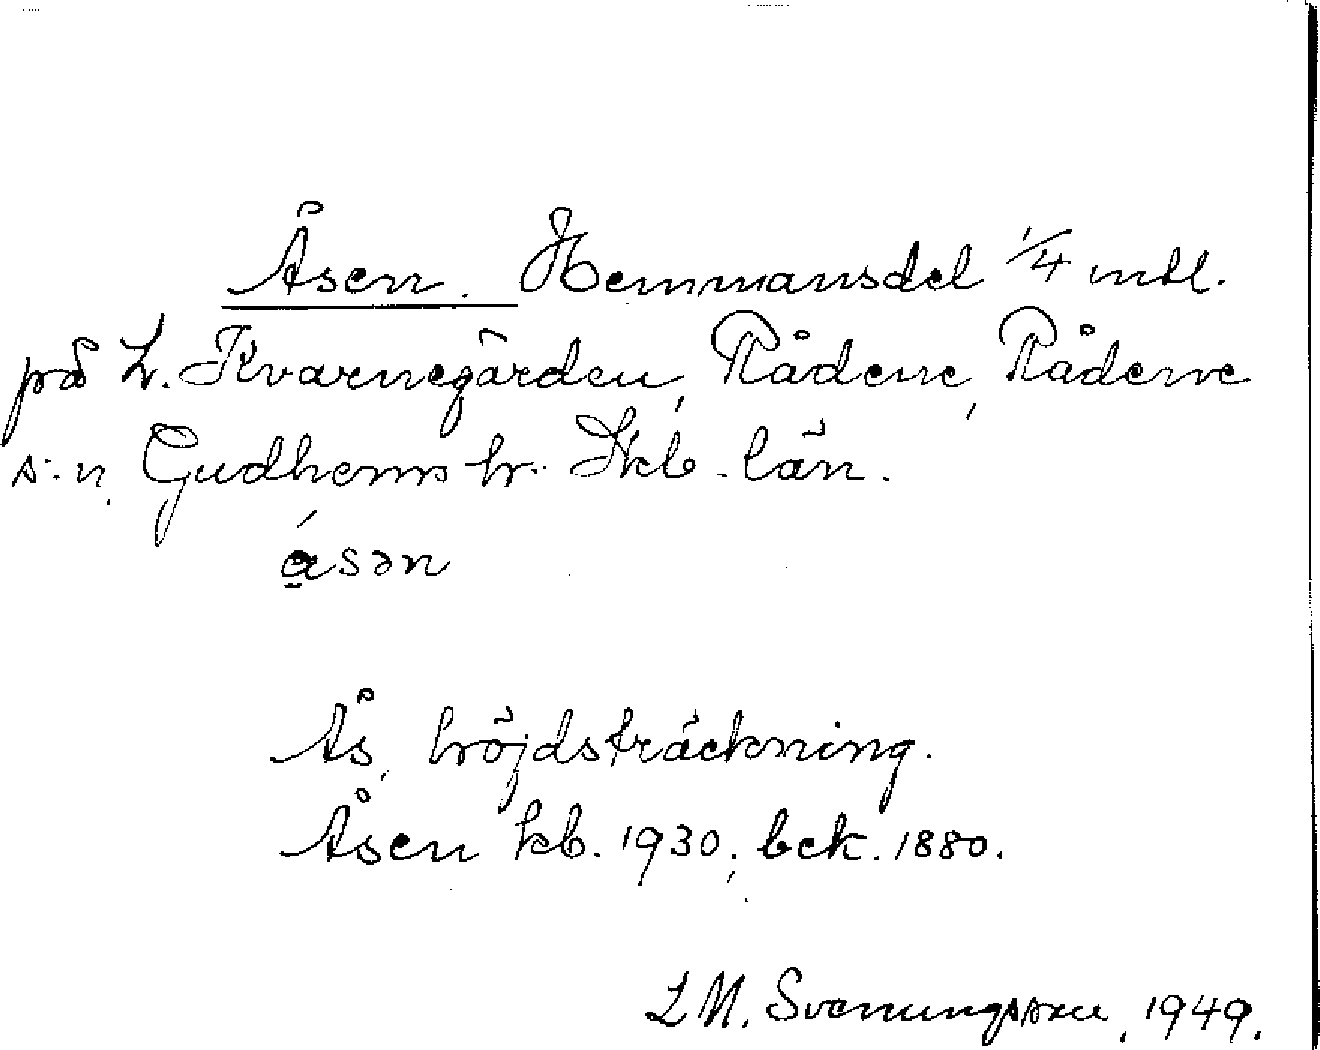 Åsen. Hemmansdel 1/4 mtl.
på L. Kvarnegården, Rådene, Rådene
s:n, Gudhems hr. Skb. län.
ásən
Ås, höjdsträckning.
Åsen kb. 1930; bck. 1880.
L M. Svenungsson, 1949.